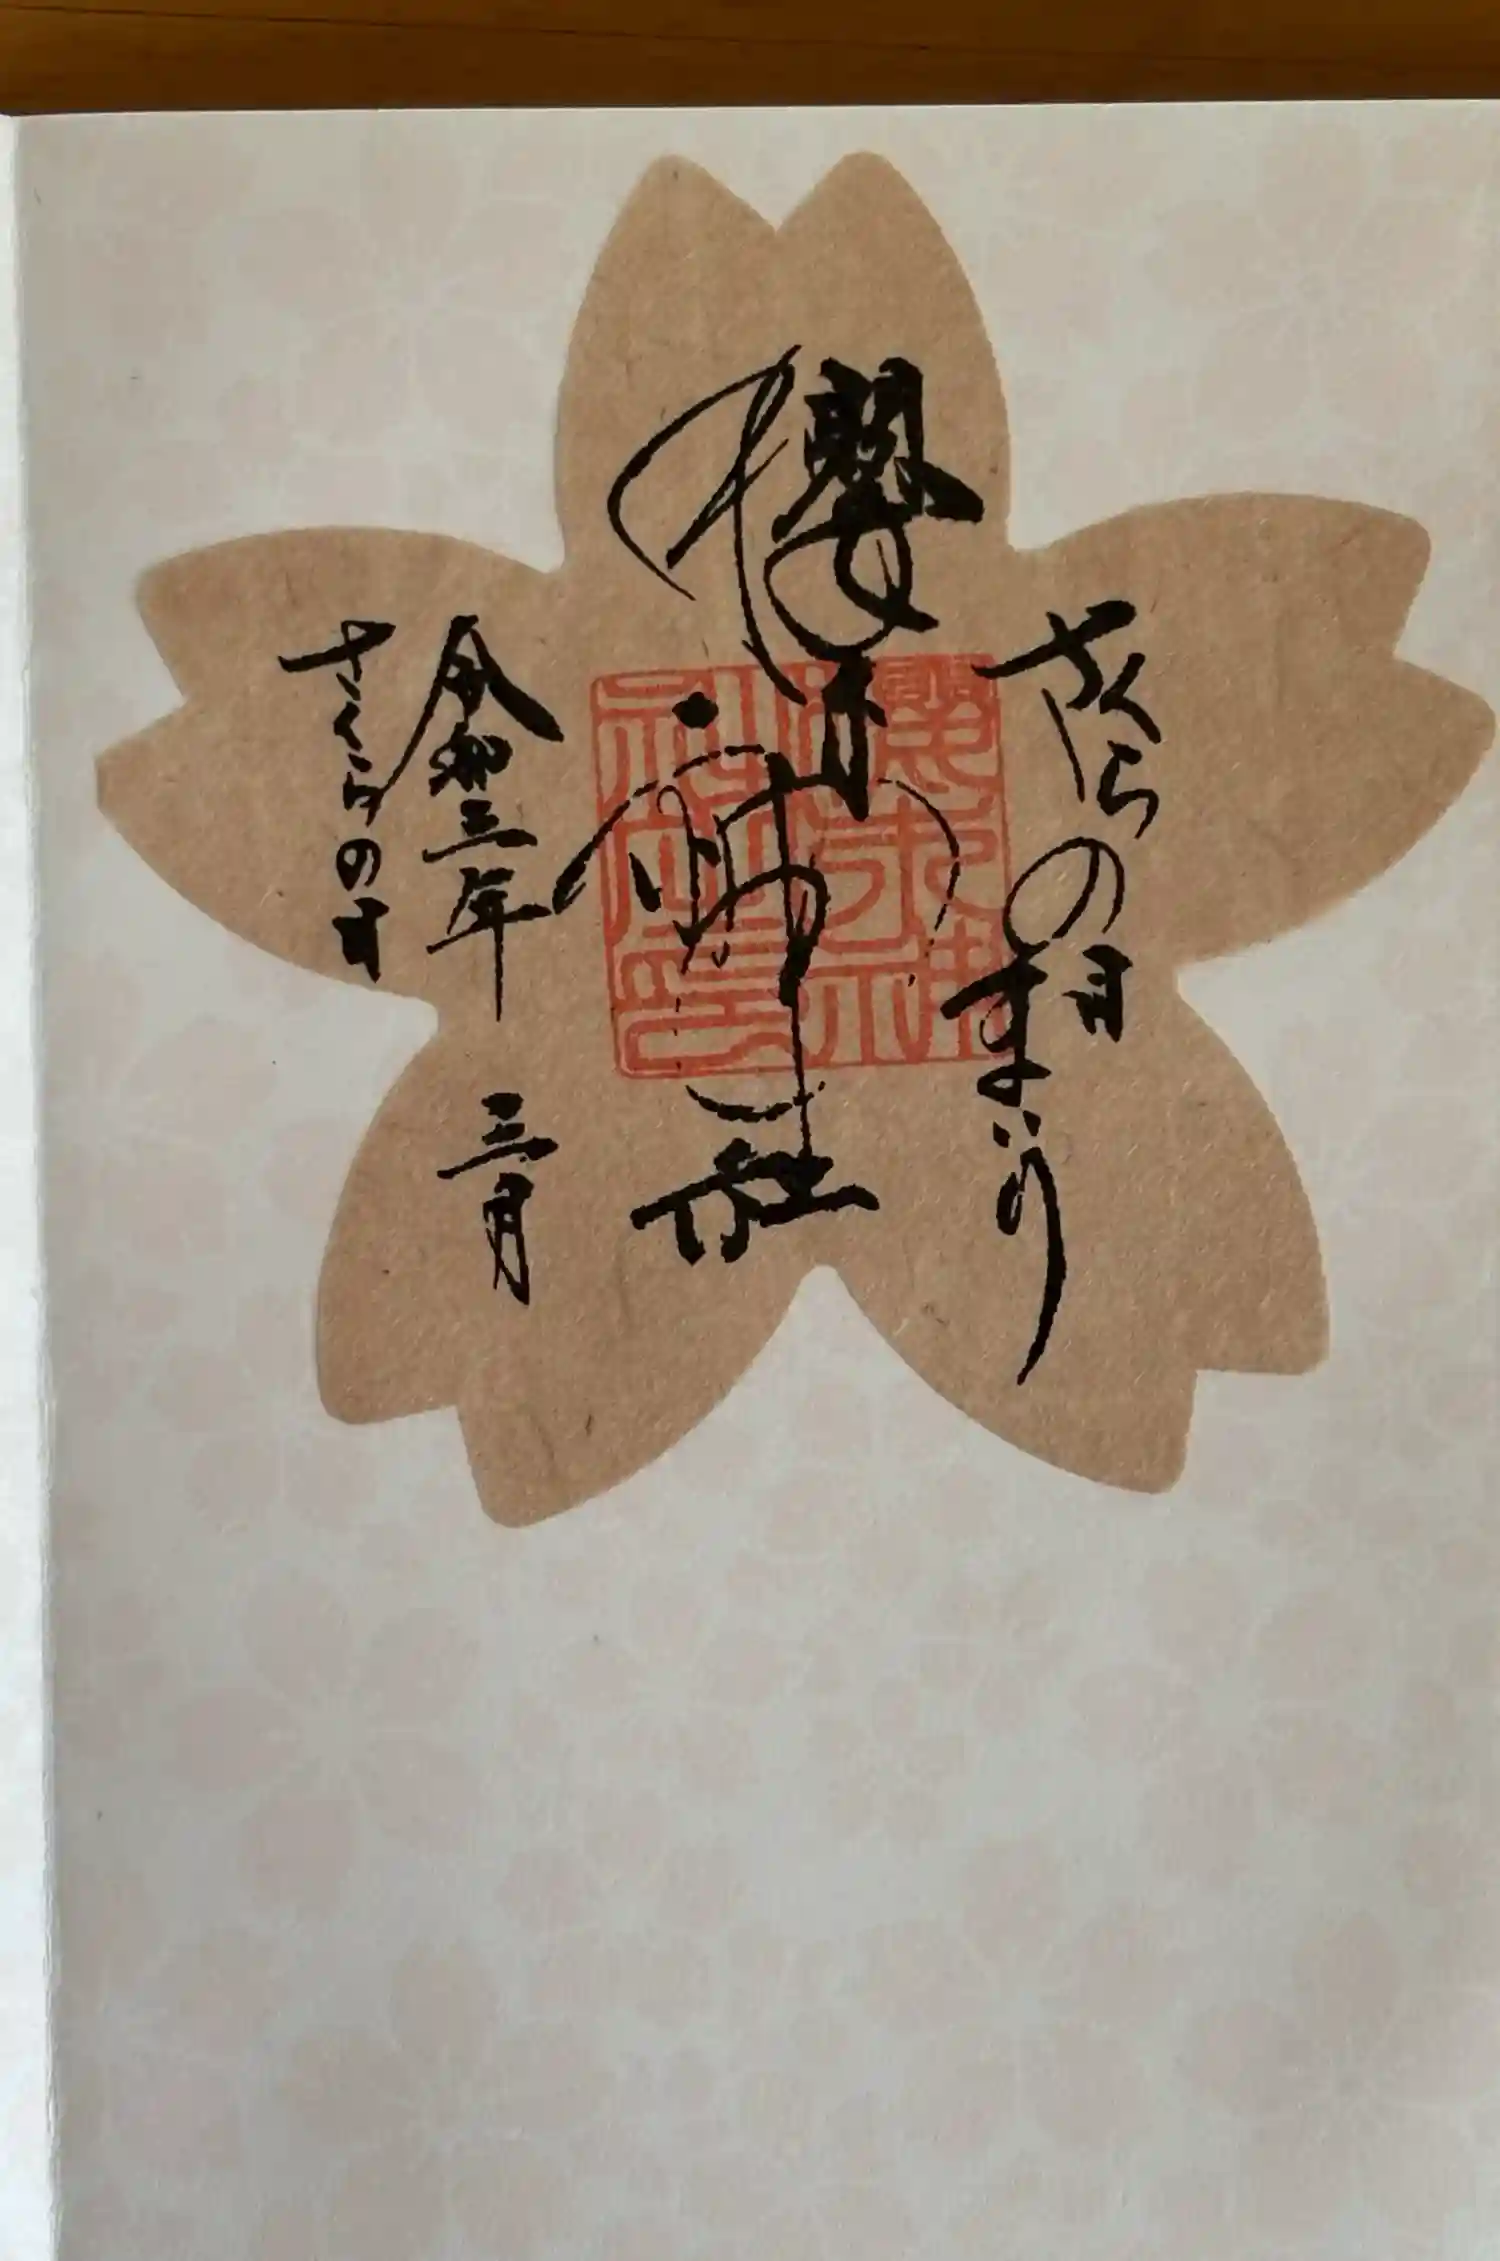 さくらの日まいり
櫻木神社
令和三年 三月
さくらの日
櫻木神
社之印